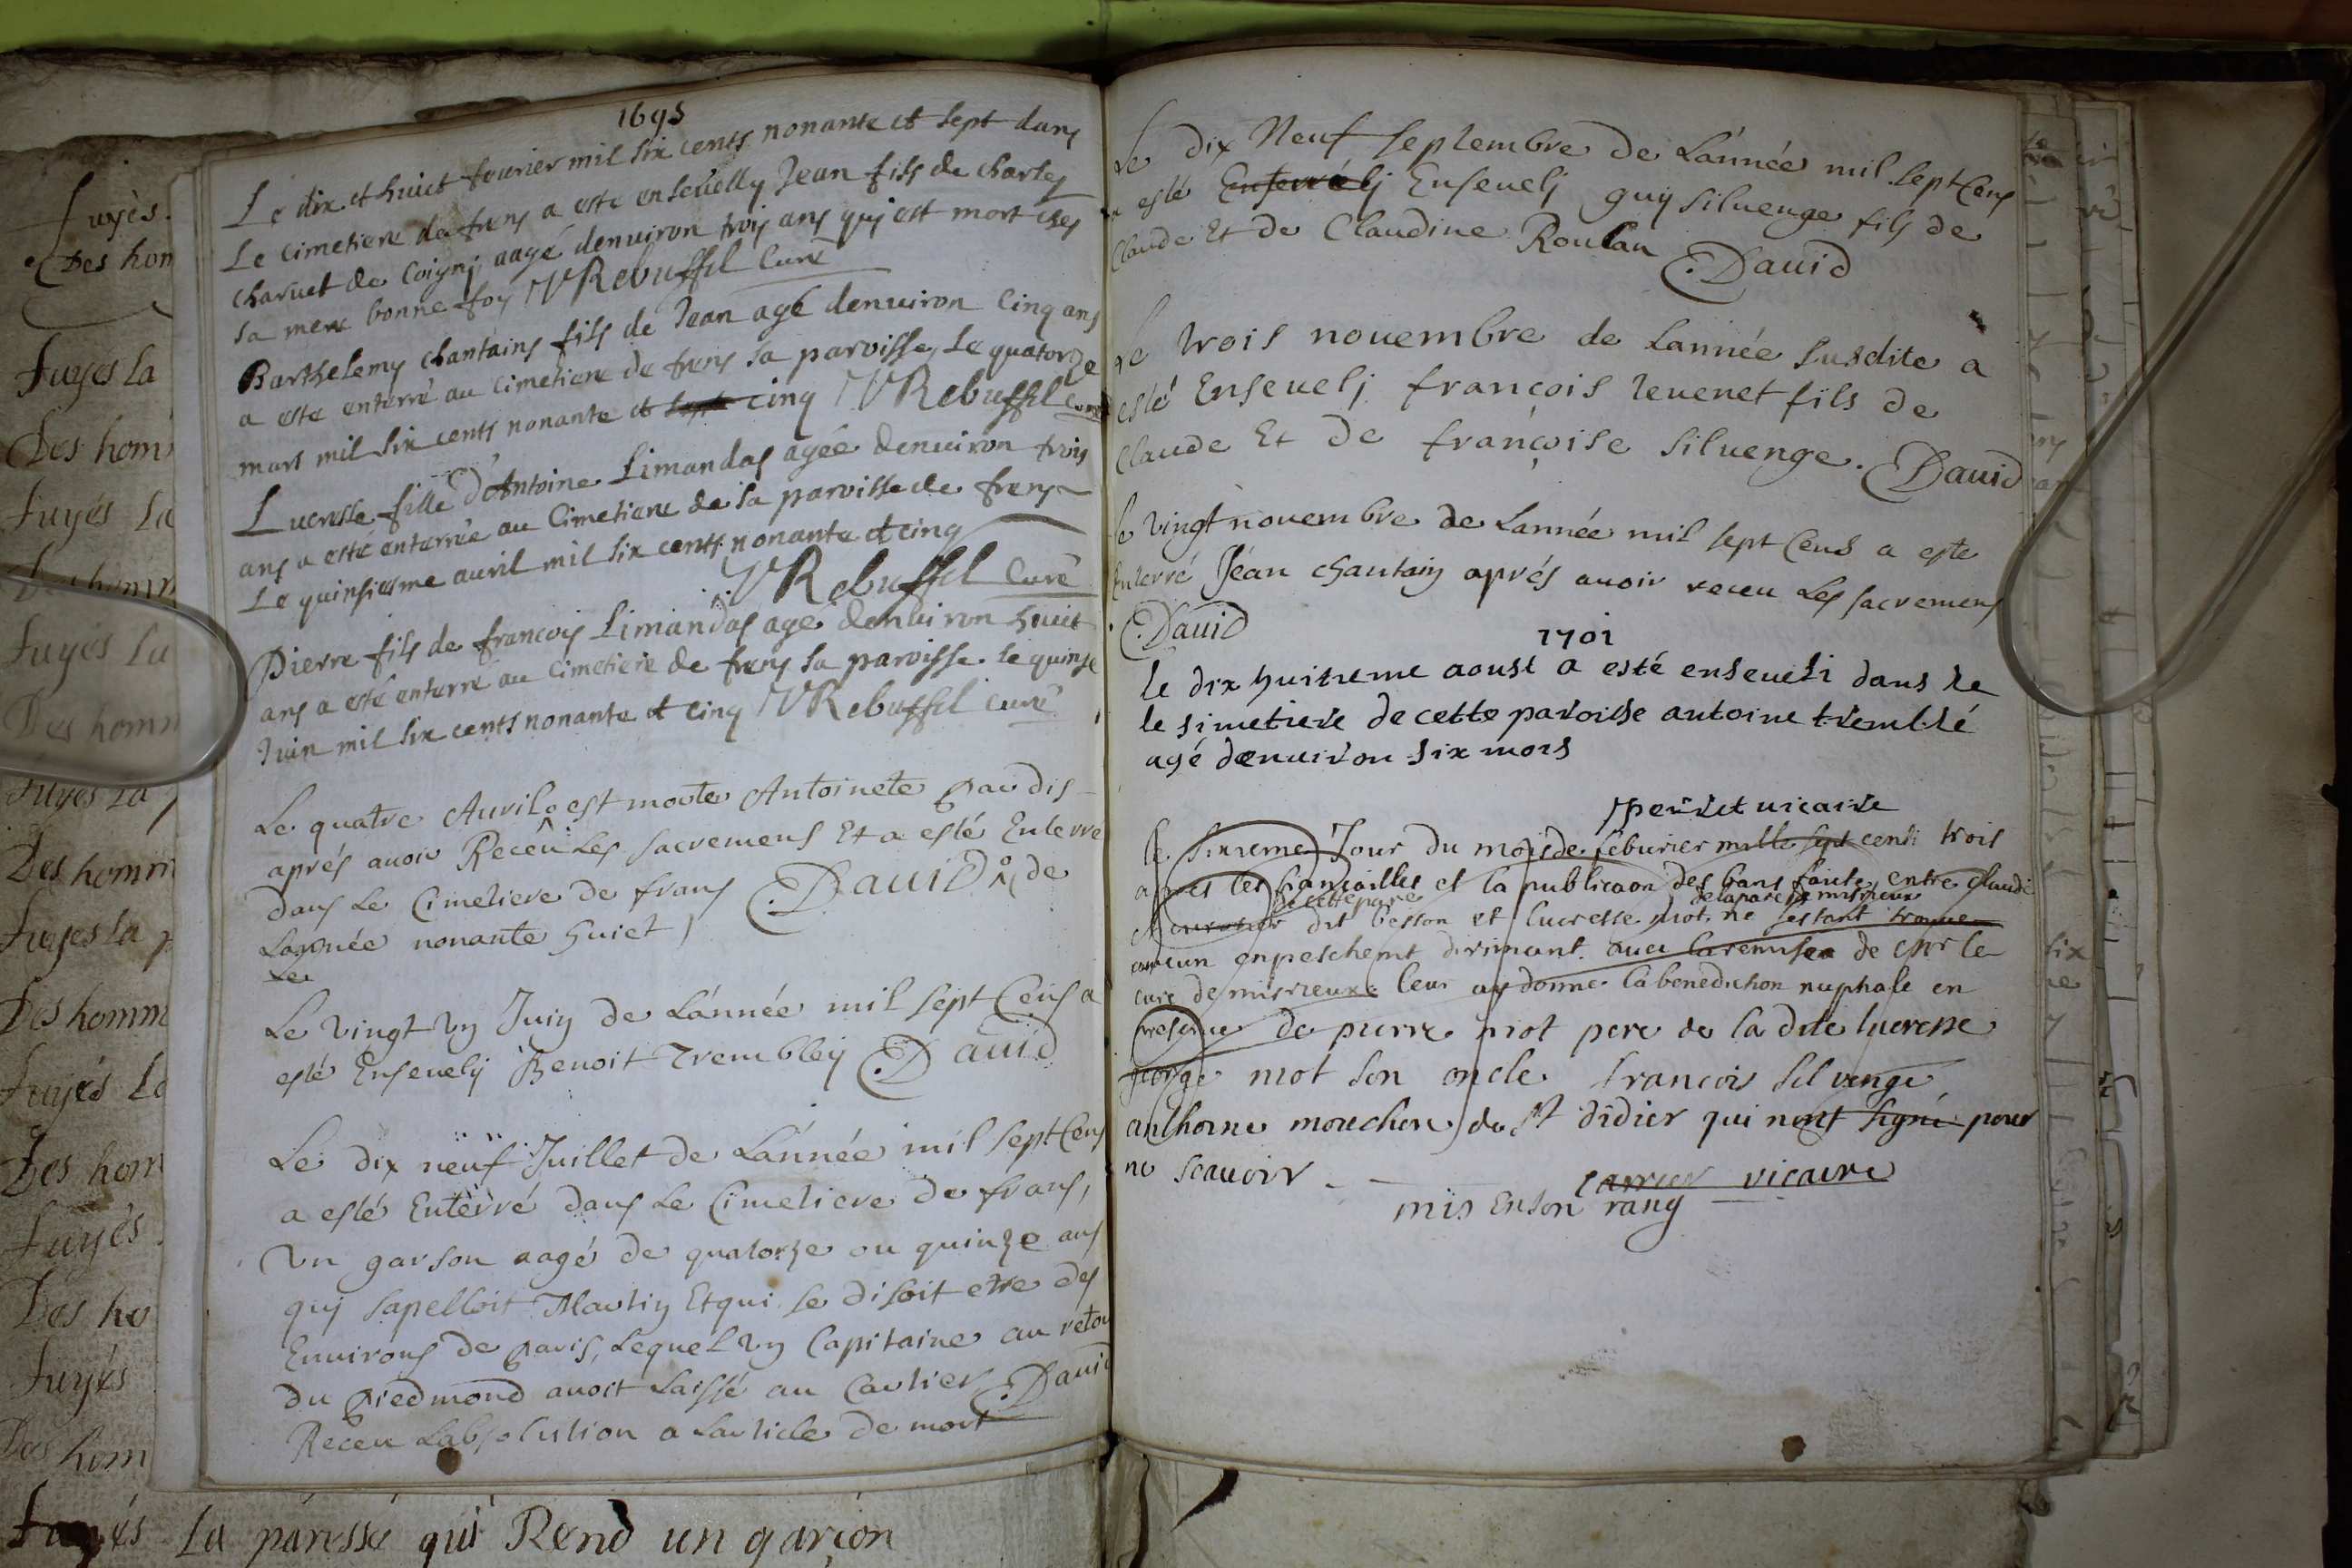 1695
Le dix et huict feurier mil six cents nonante et sept dans
Le cimetiere de frens a este enseuelly Jean fils de charles
charuet de Coigny aagé denuiron trois ans quj est mort ches
sa mere bonne foy VRebuffel Curé
Barthelemy chantains fils de Jean agé denuiron Cinq ans
a este enterré au Cimetiere de frens sa paroisse, Le quatorze
mars mil six cents nonante et sept cinq VRebuffel Curé
Lucresse fille d'Antoine Limandas agée denuiron trois
ans a esté enterrée au Cimetiere de sa paroisse de frens
Le quinsiesme auril mil six cents nonante et cinq
VRebuffel Curé
Pierre fils de francois Limandas agé denuiron huict
ans a esté enterré au Cimetiere de frens sa paroisse le quinse
Juin mil six cents nonante et cinq VRebuffel curé
Le quatre Auril est morte Antoinete
aprés auoir Receu Les sacremens Et a esté Enterré
dans Le Cimetiere de frans David de
Lannée nonante huict
Le
Le vingt vn Juin de Lannée mil sept Cens a
esté Enseuely Benoit Trembley David
Le dix neuf Juillet de Lannée mil sept Cens
a esté Enterré dans Le Cimetiere de frans,
Vn garson aagé de quatorze ou quinze ans
quj sapelloit Martin Et qui se disoit etre des
Enuirons de paris, Lequel vn Capitaine au retour
du piedmond auoit Laissé au Cartier David
Receu Labsolution a Larticle de mort
Le dix Neuf septembre de Lannée mil sept Cens
a esté Enterré Enseuelj guy siluenge fils de
Claude Et de Claudine Roulan David
Le trois nouembre de Lannée susdite a
esté Enseuelj françois Teuenet fils de
Claude Et de françoise siluenge. David
Le vingt nouembre de Lannée mil sept Cens a este
Enterré Jéan chantain aprés auoir receu Les sacremens
David
1701
le dix huitieme aoust a esté enseueli dans le
le simetiere de cette paroisse antoine tremblé
agé denuiron six mois
perret uicaire
le sixieme Jour du mois de feburier mille sept cents trois
apres les fiançailles et la publicaon des bans faite entre claude
de cette par. de la par de misrieux
dit besson et lucresse mot, ne sestant trouué
aucun enpeschemt dirimant auec la remise de Mr le
curé de misrieux leur ay donné la benediction nuptiale en
presence de pierre mot pere de la dite lucresse
george mot son oncle francois siluenge
anthoine mouchon de St didier qui nont signé pour
ne scauoir
carrier vicaire
mis En son rang
fuyès.
Des hom
fuyes la
Des hom
fuyés la
Des homm
fuyes la
Des homm
fuyes la
Des homm
fuyes la p
Des homm
fuyés la
Des hom
fuyés
Des ho
fuyés
Des hom
fuyés la páressé qui Rend un garçon